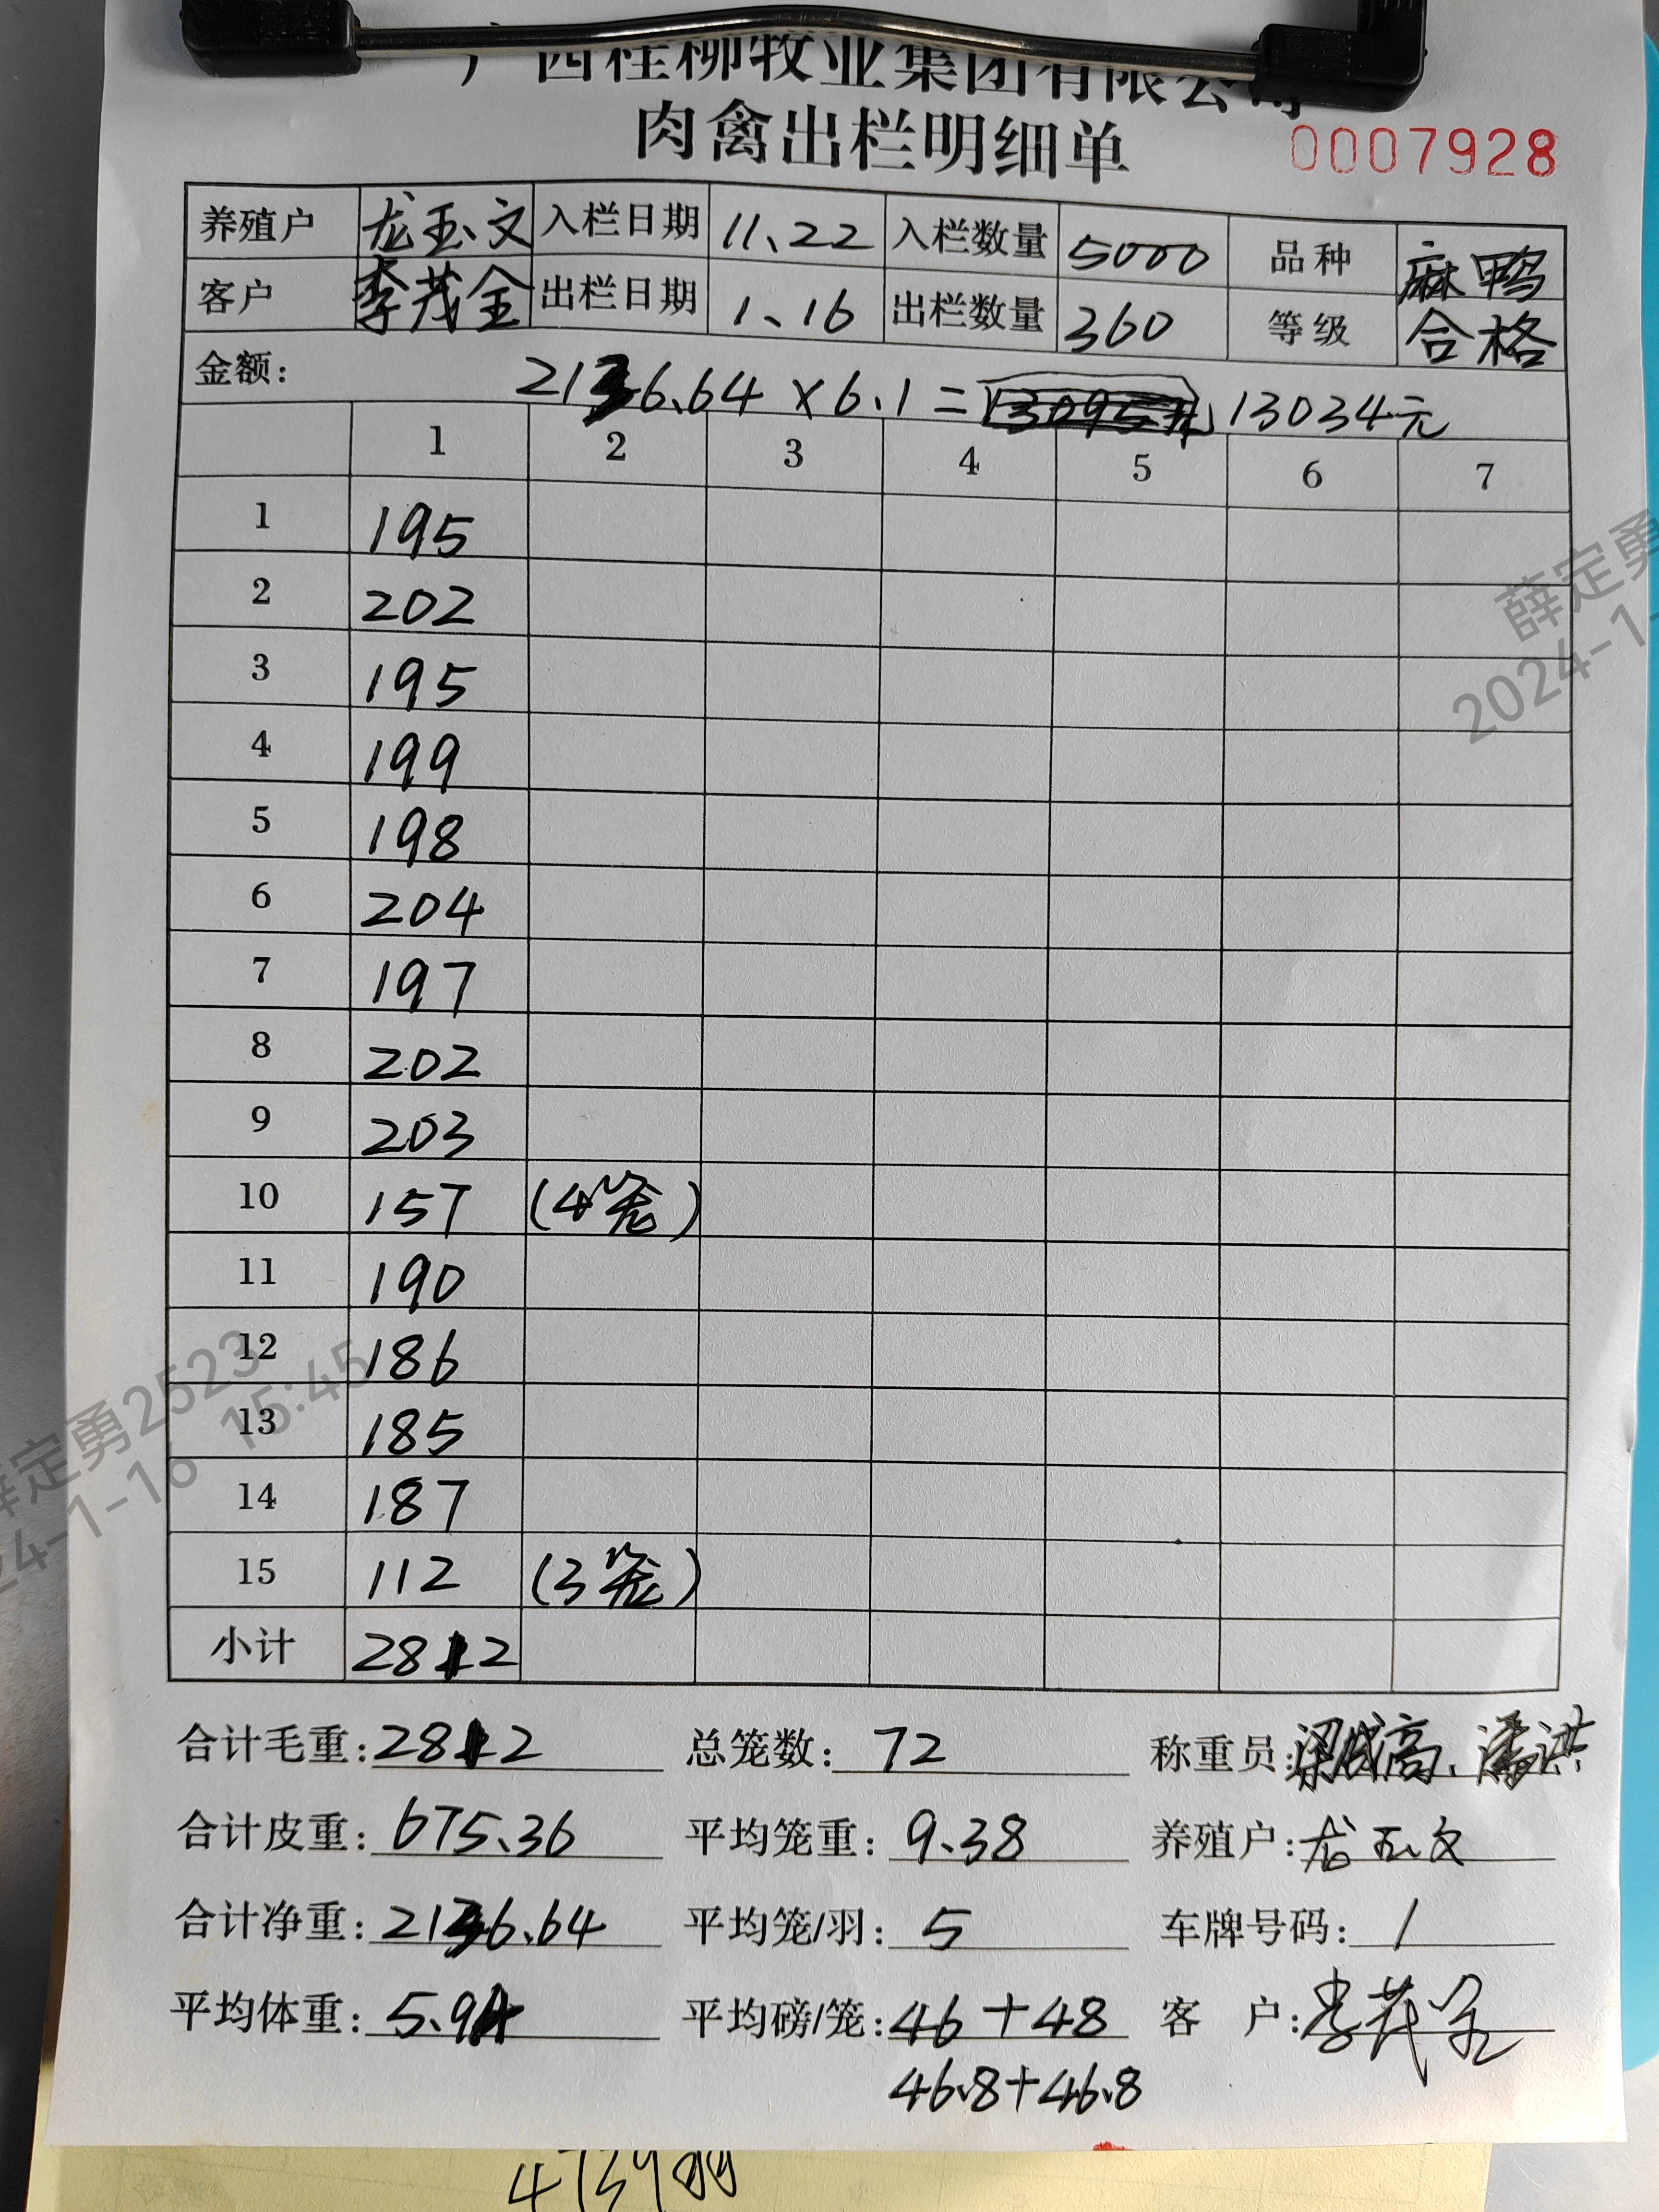 广西桂柳牧业集团有限公司
肉禽出栏明细单 0007928
养殖户 龙玉文 入栏日期 11、22 入栏数量 5000 品种 麻鸭
客户 李茂全 出栏日期 1、16 出栏数量 360 等级 合格
金额: 2136.64 × 6.1 = 13034元
1 2 3 4 5 6 7
1 195
2 202
3 195
4 199
5 198
6 204
7 197
8 202
9 203
10 157 (4笼)
11 190
12 186
13 185
14 187
15 112 (3笼)
小计 2812
合计毛重: 2812 总笼数: 72 称重员: 梁成高、潘洪
合计皮重: 675.36 平均笼重: 9.38 养殖户: 龙玉文
合计净重: 2136.64 平均笼/羽: 5 车牌号码: 1
平均体重: 5.94 平均磅/笼: 46+48 客 户: 李茂全
46.8+46.8
薛定勇
2024-1-
薛定勇2523
24-1-16 15:45